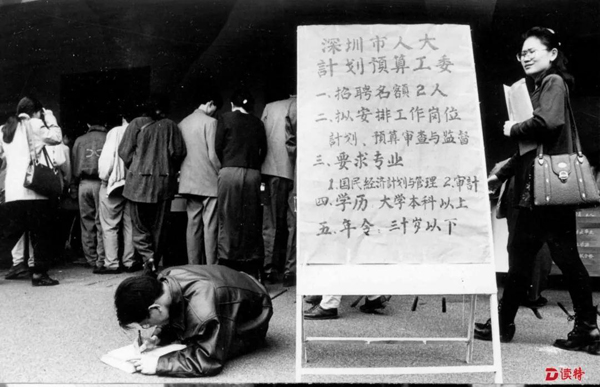 深圳市人大
計划预算工委
一、招聘名額2人
二、拟安排工作岗位
計划、预算审查与监督
三、要求专业
1.国民经济計划与管理 2.审計
四、学历 大学本科以上
五、年令：三十岁以下
D读特